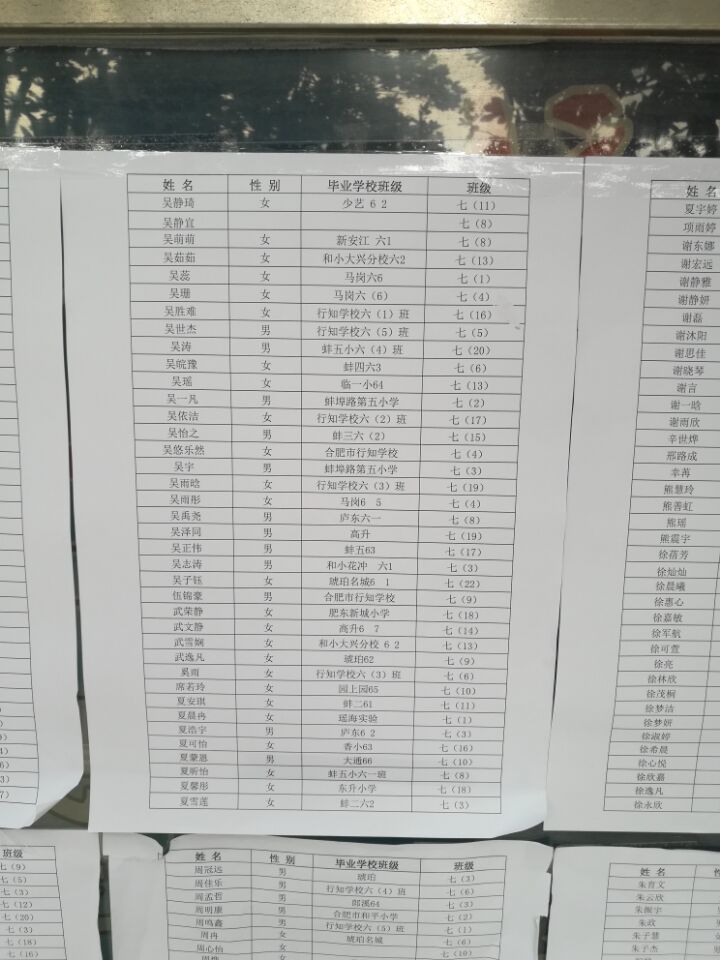 姓 名 性 别 毕业学校班级 班级
吴静琦 女 少艺 6 2 七（11）
吴静宜 七（8）
吴萌萌 女 新安江 六1 七（8）
吴茹茹 女 和小大兴分校六2 七（13）
吴蕊 女 马岗六6 七（1）
吴珊 女 马岗六（6） 七（4）
吴胜难 女 行知学校六（1）班 七（16）
吴世杰 男 行知学校六（5）班 七（5）
吴涛 男 蚌五小六（4）班 七（20）
吴皖豫 女 蚌四六3 七（6）
吴瑶 女 临一小64 七（13）
吴一凡 男 蚌埠路第五小学 七（2）
吴依洁 女 行知学校六（2）班 七（17）
吴怡之 男 蚌三六（2） 七（15）
吴悠乐然 女 合肥市行知学校 七（4）
吴宇 男 蚌埠路第五小学 七（3）
吴雨晗 女 行知学校六（3）班 七（19）
吴雨彤 女 马岗6 5 七（4）
吴禹尧 男 庐东六一 七（8）
吴泽同 男 高升 七（19）
吴正伟 男 蚌五63 七（17）
吴志涛 男 和小花冲 六1 七（3）
吴子钰 女 琥珀名城6 1 七（22）
伍锦豪 男 合肥市行知学校 七（9）
武荣静 女 肥东新城小学 七（18）
武文静 女 高升6 7 七（14）
武雪娴 女 和小大兴分校 6 2 七（13）
武逸凡 女 琥珀62 七（9）
奚雨 女 行知学校六（3）班 七（6）
席若玲 女 园上园65 七（10）
夏安琪 女 蚌二61 七（11）
夏晨冉 女 瑶海实验 七（1）
夏浩宇 男 庐东6 2 七（3）
夏可怡 女 香小63 七（16）
夏蒙恩 男 大通66 七（10）
夏昕怡 女 蚌五小六一班 七（8）
夏馨彤 女 东升小学 七（18）
夏雪莲 女 蚌二六2 七（3）
姓 名
夏宇婷
项雨婷
谢东娜
谢宏远
谢静雅
谢静妍
谢磊
谢沐阳
谢思佳
谢晓琴
谢言
谢一晗
谢雨欣
辛世烨
邢路成
幸苒
熊慧玲
熊善虹
熊瑶
熊震宇
徐蓓芳
徐灿灿
徐晨曦
徐惠心
徐嘉敏
徐军航
徐可萱
徐亮
徐林欣
徐茂桐
徐梦洁
徐梦妍
徐淑婷
徐希晨
徐心悦
徐欣嘉
徐逸凡
徐永欣
班级
七（9）
七（5）
七（3）
七（12）
七（20）
七（3）
七（18）
七（16）
姓 名 性 别 毕业学校班级 班级
周冠远 男 琥珀 七（3）
周佳乐 男 行知学校六（4）班 七（6）
周孟哲 男 郎溪64 七（3）
周明康 男 合肥市和平小学 七（2）
周鸣鑫 男 行知学校六（5）班 七（1）
周冉 女 琥珀名城 七（6）
周心怡 女 七（10）
姓 名
朱育文
朱云欣
朱振宇
朱政
朱子慧
朱子杰